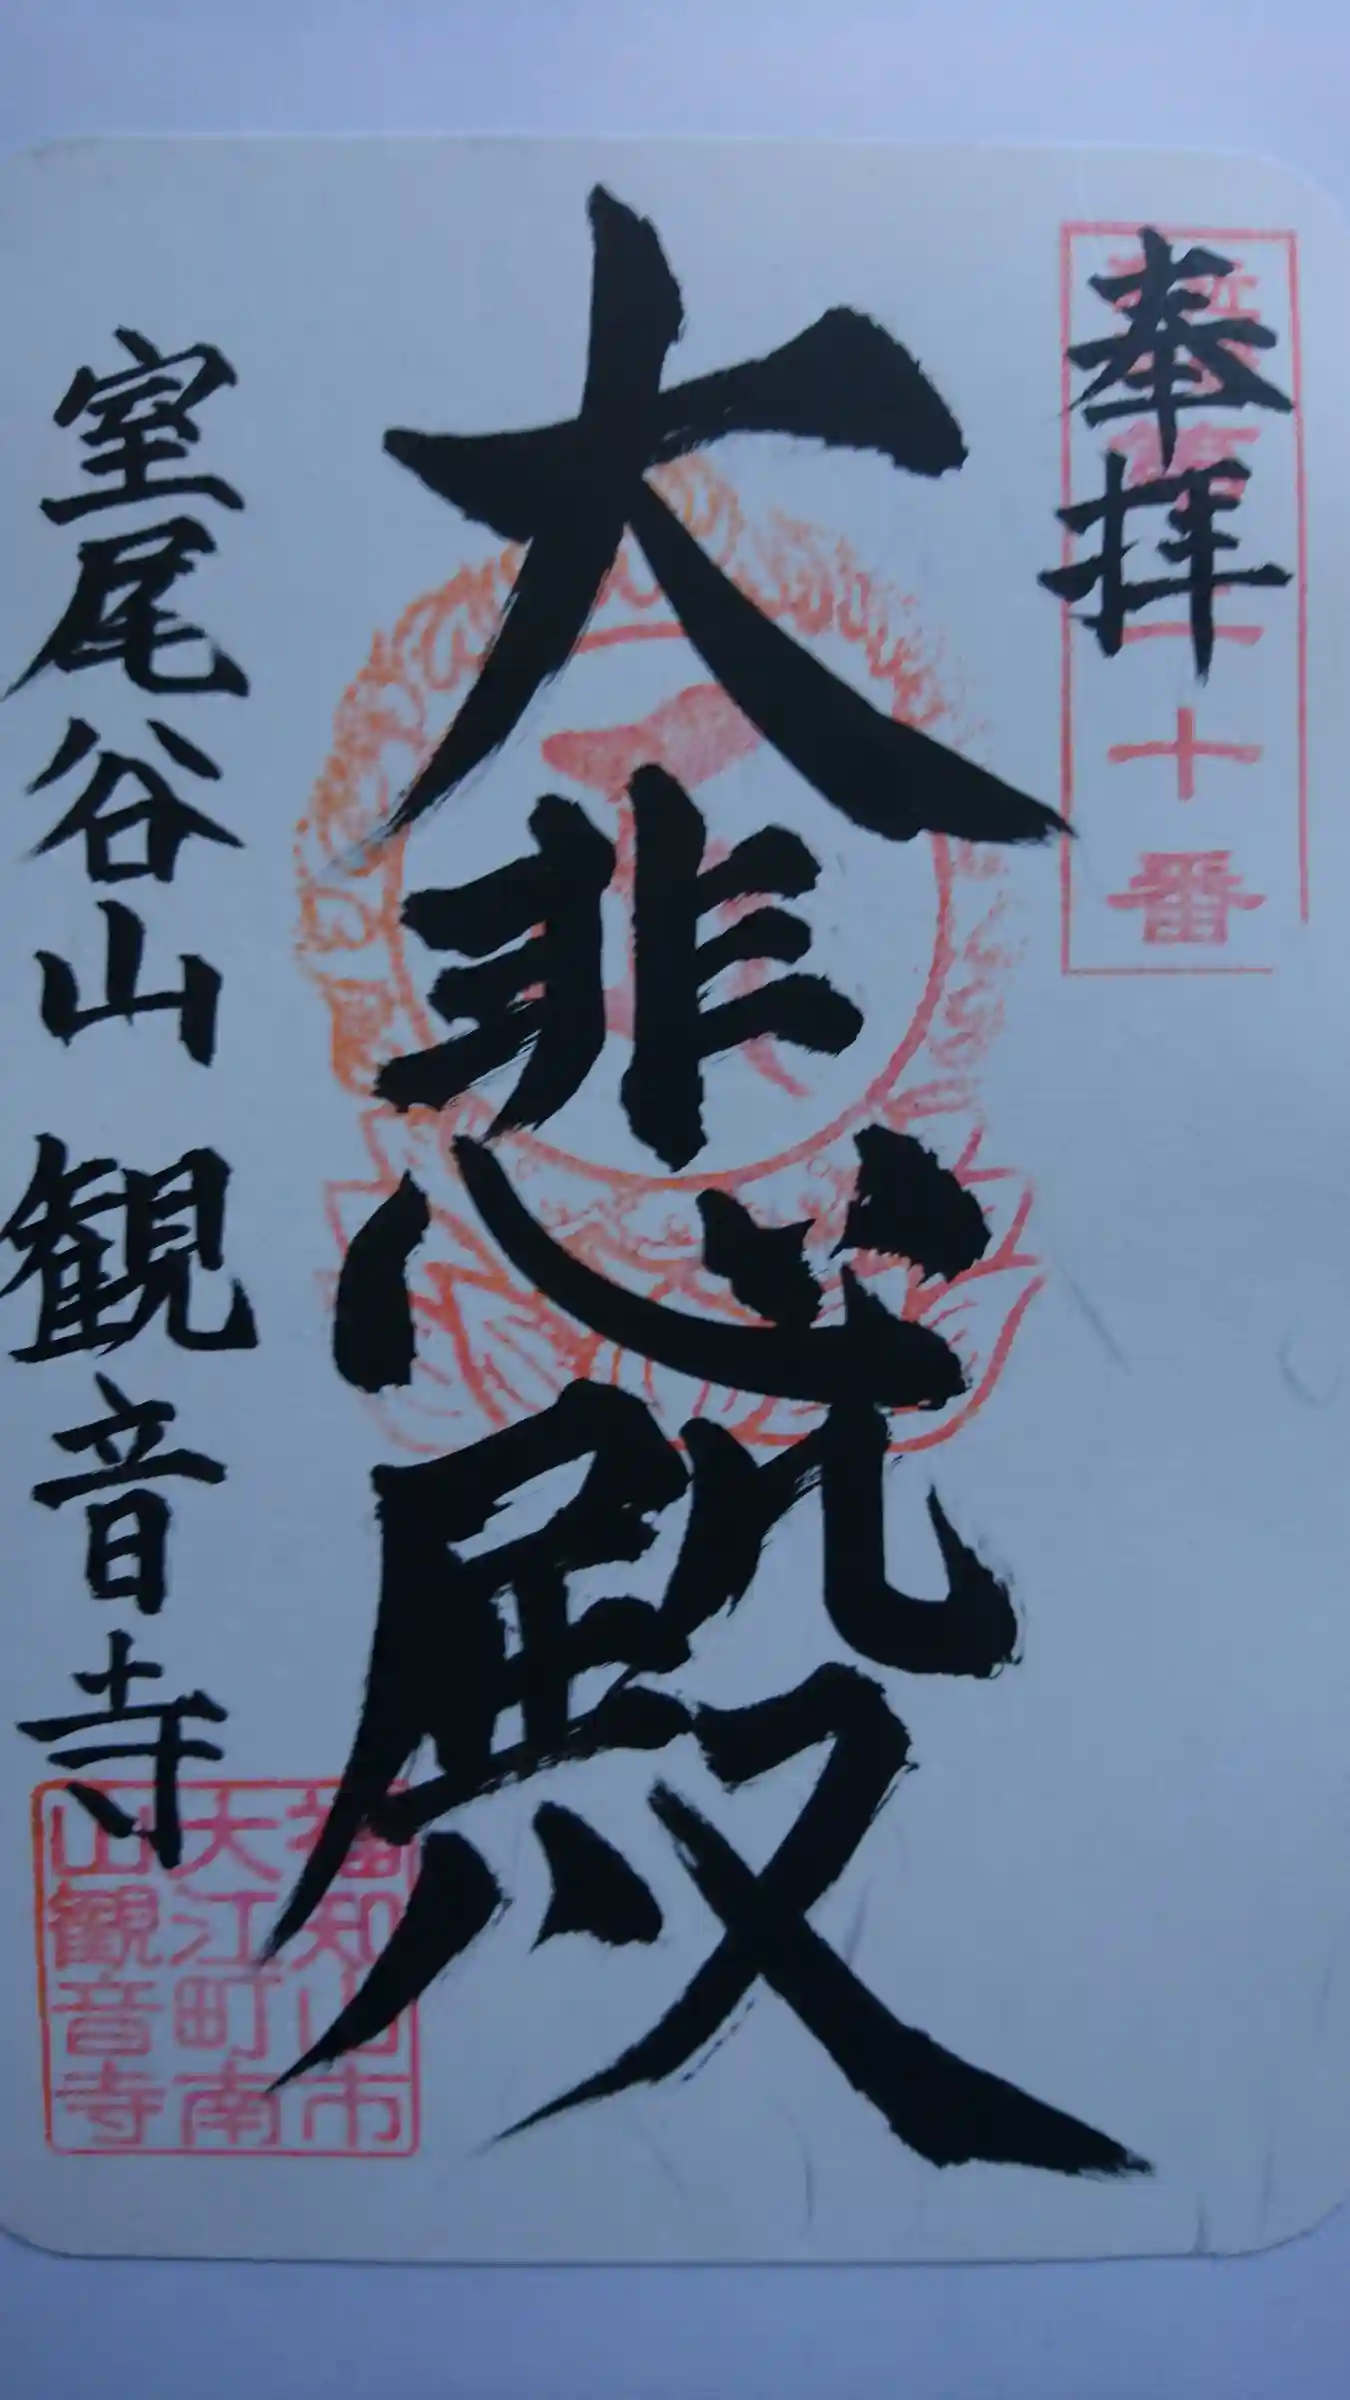 奉拝
十番
大悲殿
室尾谷山観音寺
福知山市
大江町南
山観音寺